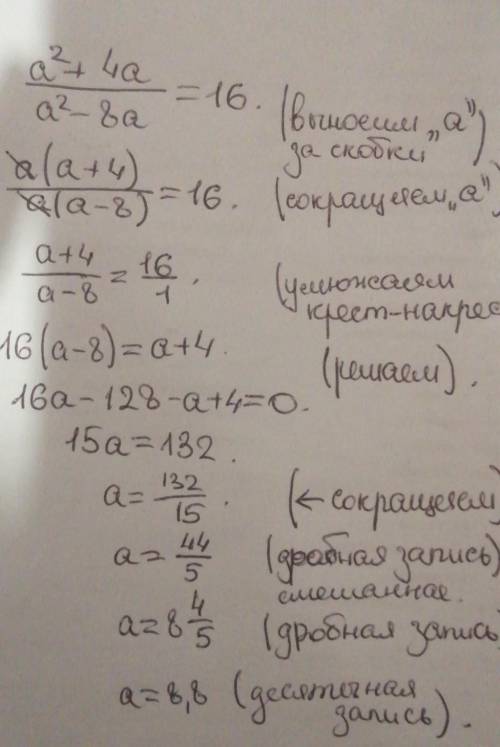 a²+ 4a / a²- 8a = 16. (выносим „a“ за скобки
a(a+4) / a(a-8) = 16. (сокращаем „a“)
a+4 / a-8 = 16/1. (умножаем крест-накрес
16(a-8)=a+4.
(решаем).
16a-128-a+4=0.
15a=132.
a= 132/15. (← сокращаем)
a= 44/5 (дробная запись)
смешанная.
a=8 4/5 (дробная запись
a=8,8 (десятичная запись).